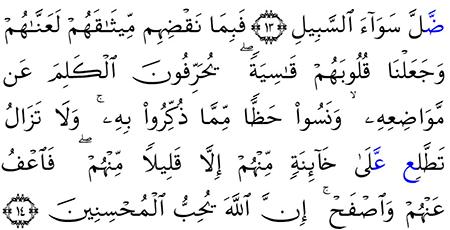 ضَّلَّ سَوَآءَ ٱلسَّبِيلِ ۝١٣ فَبِمَا نَقْضِهِم مِّيثَـٰقَهُمْ لَعَنَّـٰهُمْ
وَجَعَلْنَا قُلُوبَهُمْ قَـٰسِيَةً ۖ يُحَرِّفُونَ ٱلْكَلِمَ عَن
مَّوَاضِعِهِۦ ۙ وَنَسُوا۟ حَظًّا مِّمَّا ذُكِّرُوا۟ بِهِۦ ۚ وَلَا تَزَالُ
تَطَّلِع عَّلَىٰ خَآئِنَةٍ مِّنْهُمْ إِلَّا قَلِيلًا مِّنْهُمْ ۖ فَٱعْفُ
عَنْهُمْ وَٱصْفَحْ ۚ إِنَّ ٱللَّهَ يُحِبُّ ٱلْمُحْسِنِينَ ۝١٤